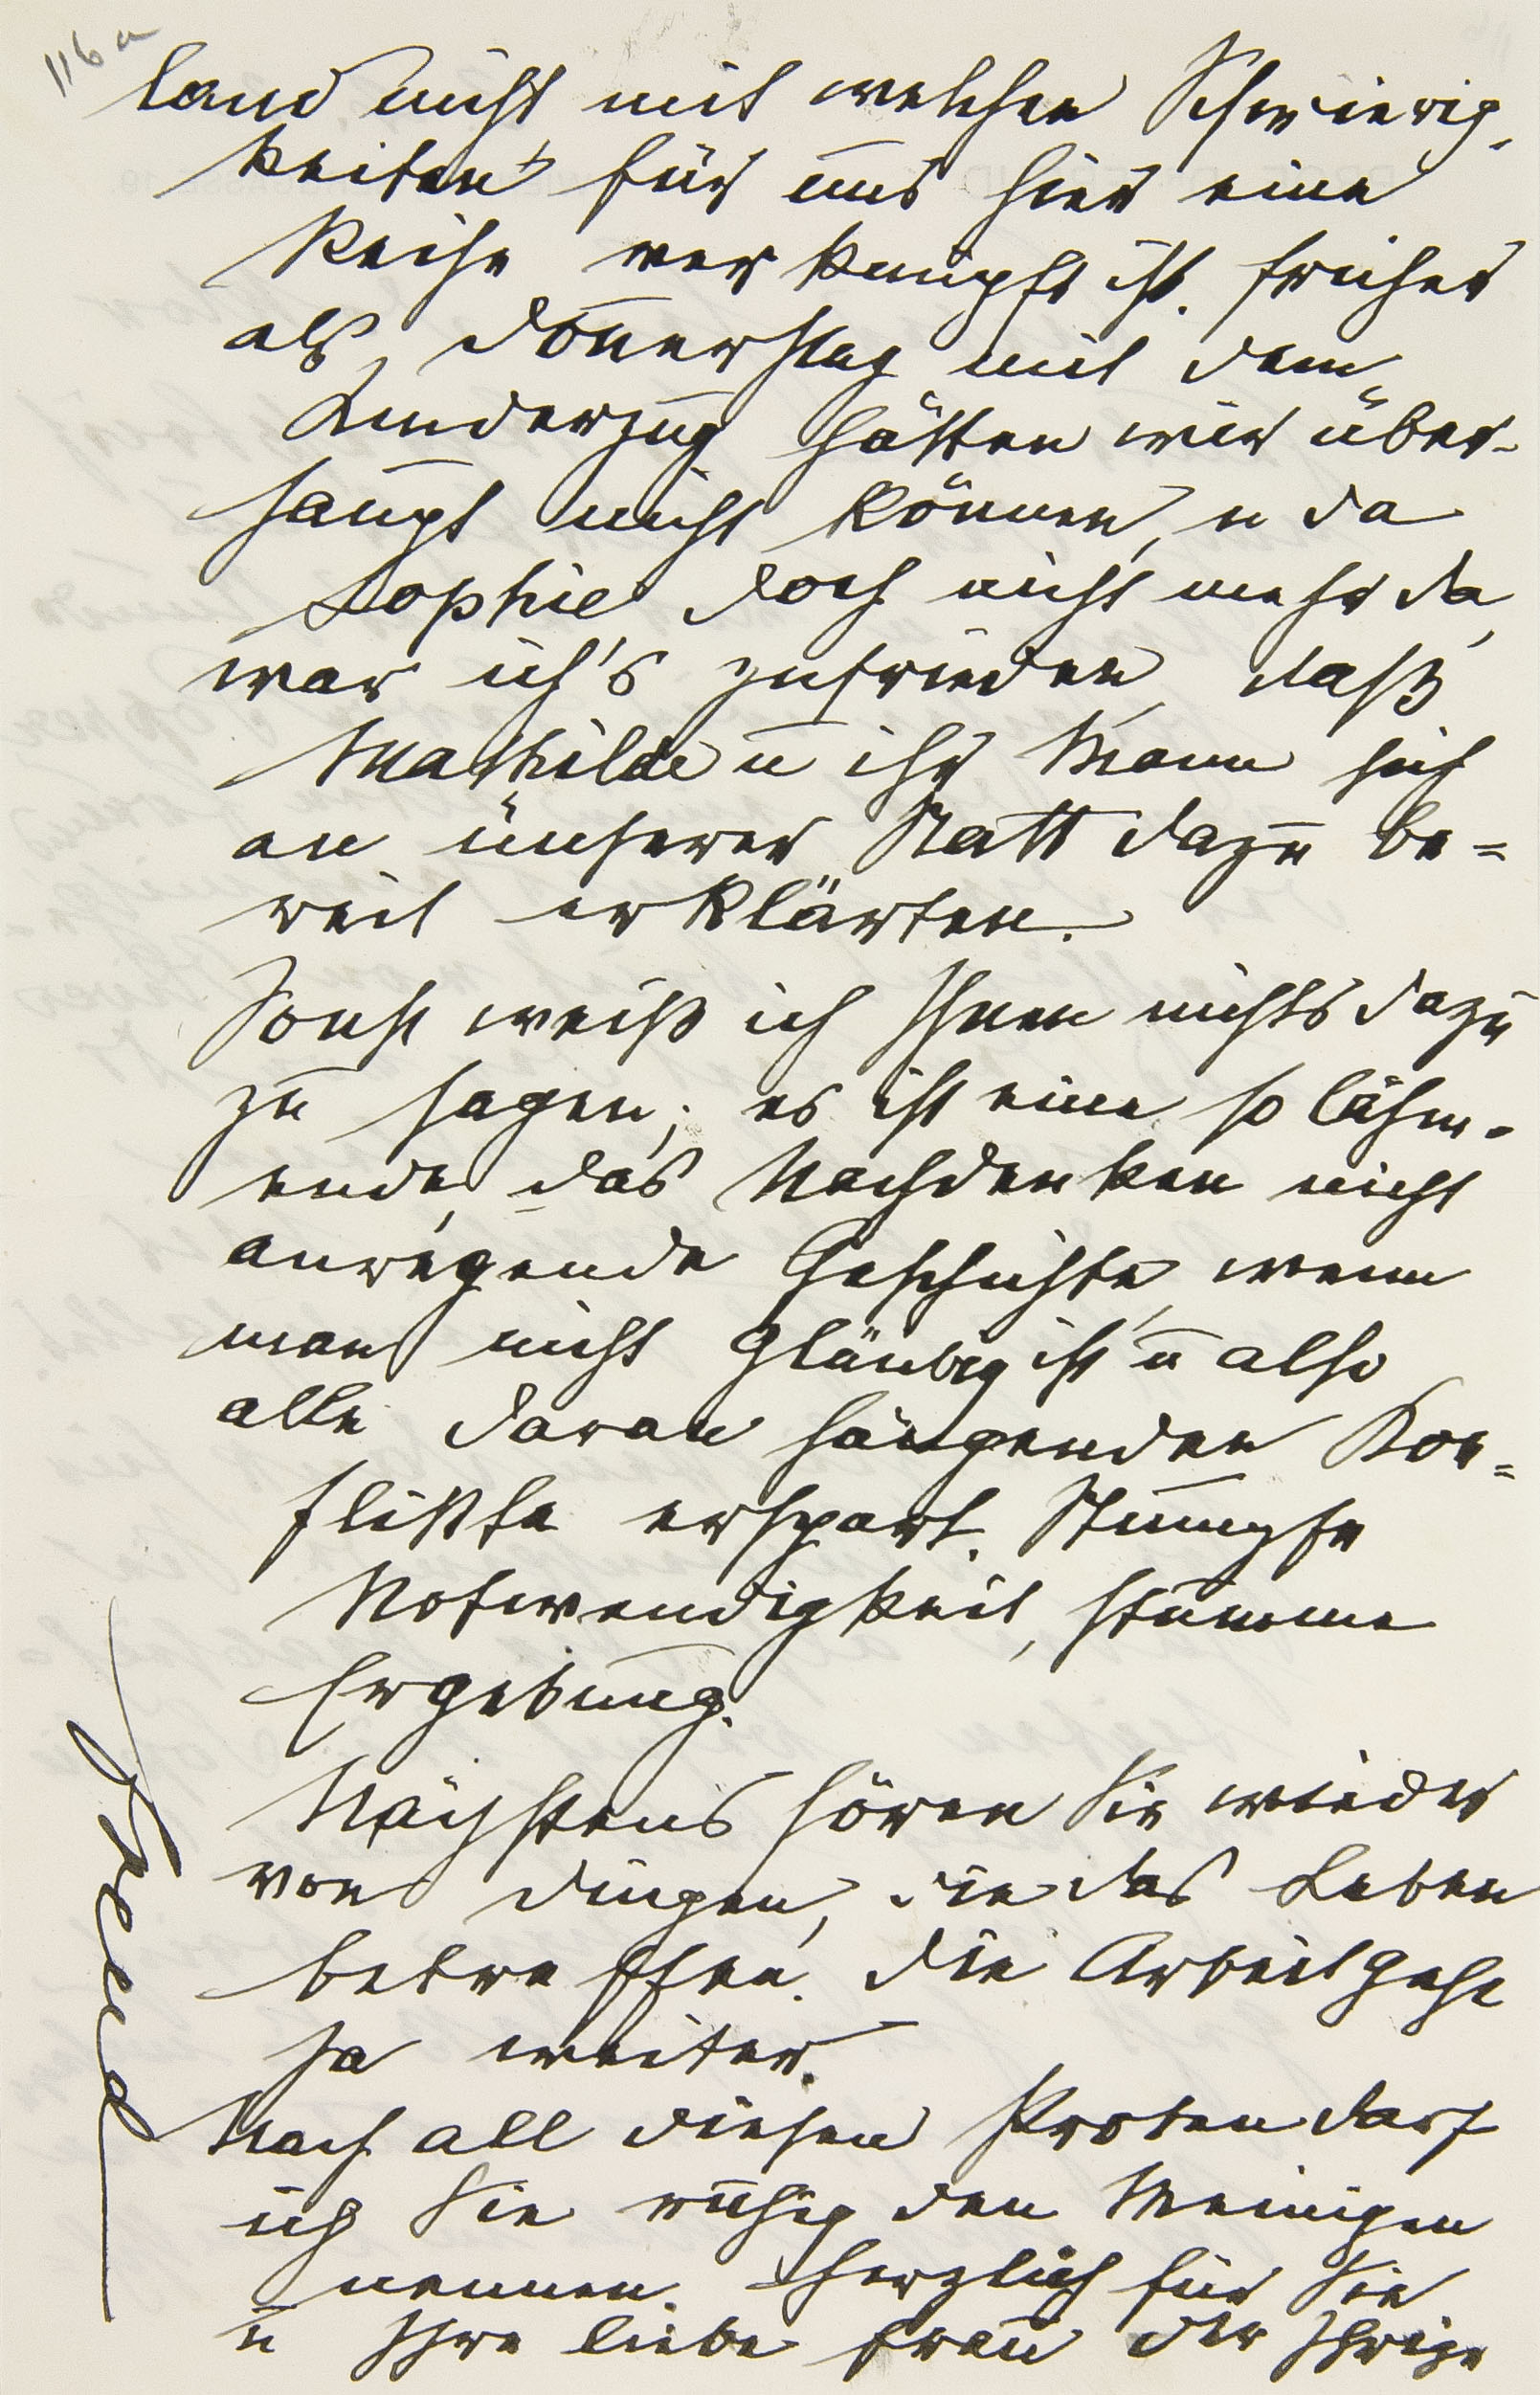 116a
land nicht mit welchen Schwierig-
keiten für uns hier eine
Reise verknüpft ist. Früher
als Donnerstag mit dem
Kinderzug hätten wir über-
haupt nicht können, u da
Sophie doch nicht mehr da,
war ich's zufrieden, daß
Mathilde u ihr Mann sich
an unserer Statt dazu be=
reit erklärten.
Sonst weiß ich Ihnen nichts dazu
zu sagen; es ist eine so lähm-
ende, das Nachdenken nicht
anregende Geschichte, wenn
man nicht gläubig ist u also
alle daran hängenden Kon=
flikte erspart. Stumpfe
Notwendigkeit, stumme
Ergebung.
Nächstens hören Sie wieder
von Dingen, die das Leben
betreffen. Die Arbeit geht
ja weiter.
Nach all diesen Proben darf
ich Sie ruhig den Meinigen
nennen. Herzlich für Sie
u Ihre liebe Frau der Ihrige
Freud